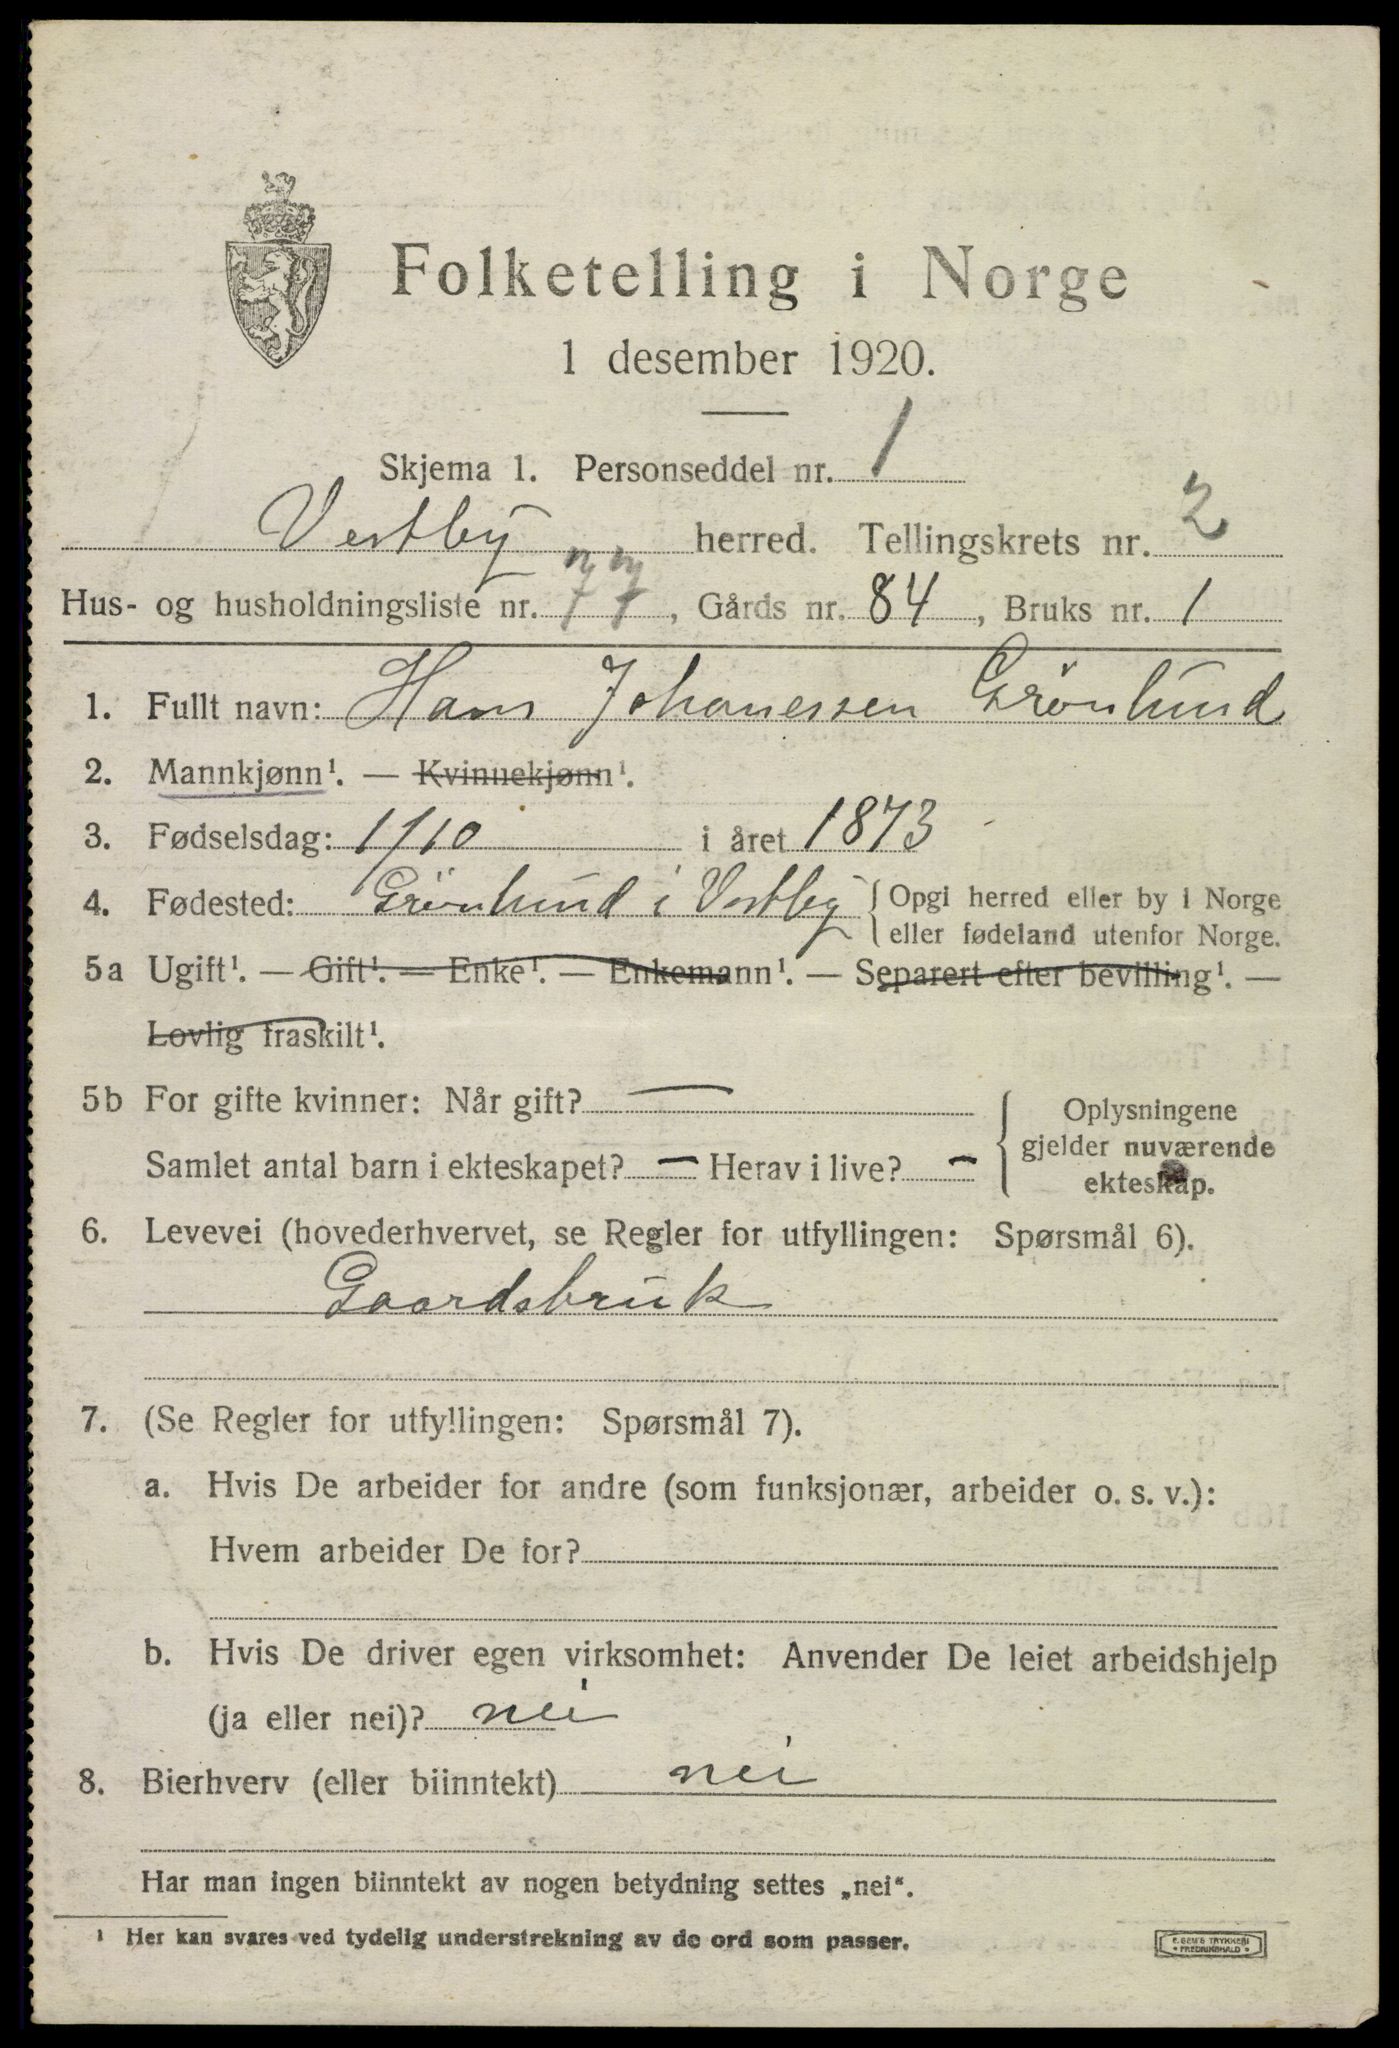 Folketelling i Norge
1 desember 1920.
Skjema 1. Personseddel nr. 1
Vestby herred. Tellingskrets nr. 2
Hus- og husholdningsliste nr. 77, Gårds nr. 84, Bruks nr. 1
1. Fullt navn: Hans Johanessen Grönlund
2. Mannkjønn¹. — Kvinnekjønn¹.
3. Fødselsdag: 1/10 i året 1873
4. Fødested: Grönlund i Vestby { Opgi herred eller by i Norge
eller fødeland utenfor Norge.
5a Ugift¹. — Gift¹. — Enke¹. — Enkemann¹. — Separert efter bevilling¹. —
Lovlig fraskilt¹.
5b For gifte kvinner: Når gift? —
Samlet antal barn i ekteskapet? — Herav i live? —
{ Oplysningene
gjelder nuværende
ekteskap.
6. Levevei (hovederhvervet, se Regler for utfyllingen: Spørsmål 6).
Gaardsbruk
7. (Se Regler for utfyllingen: Spørsmål 7).
a. Hvis De arbeider for andre (som funksjonær, arbeider o. s. v.):
Hvem arbeider De for?
b. Hvis De driver egen virksomhet: Anvender De leiet arbeidshjelp
(ja eller nei)? nei
8. Bierhverv (eller biinntekt) nei
Har man ingen biinntekt av nogen betydning settes „nei“.
¹ Her kan svares ved tydelig understrekning av de ord som passer.
E. SEM'S TRYKKERI
• FREDRIKSHALD •